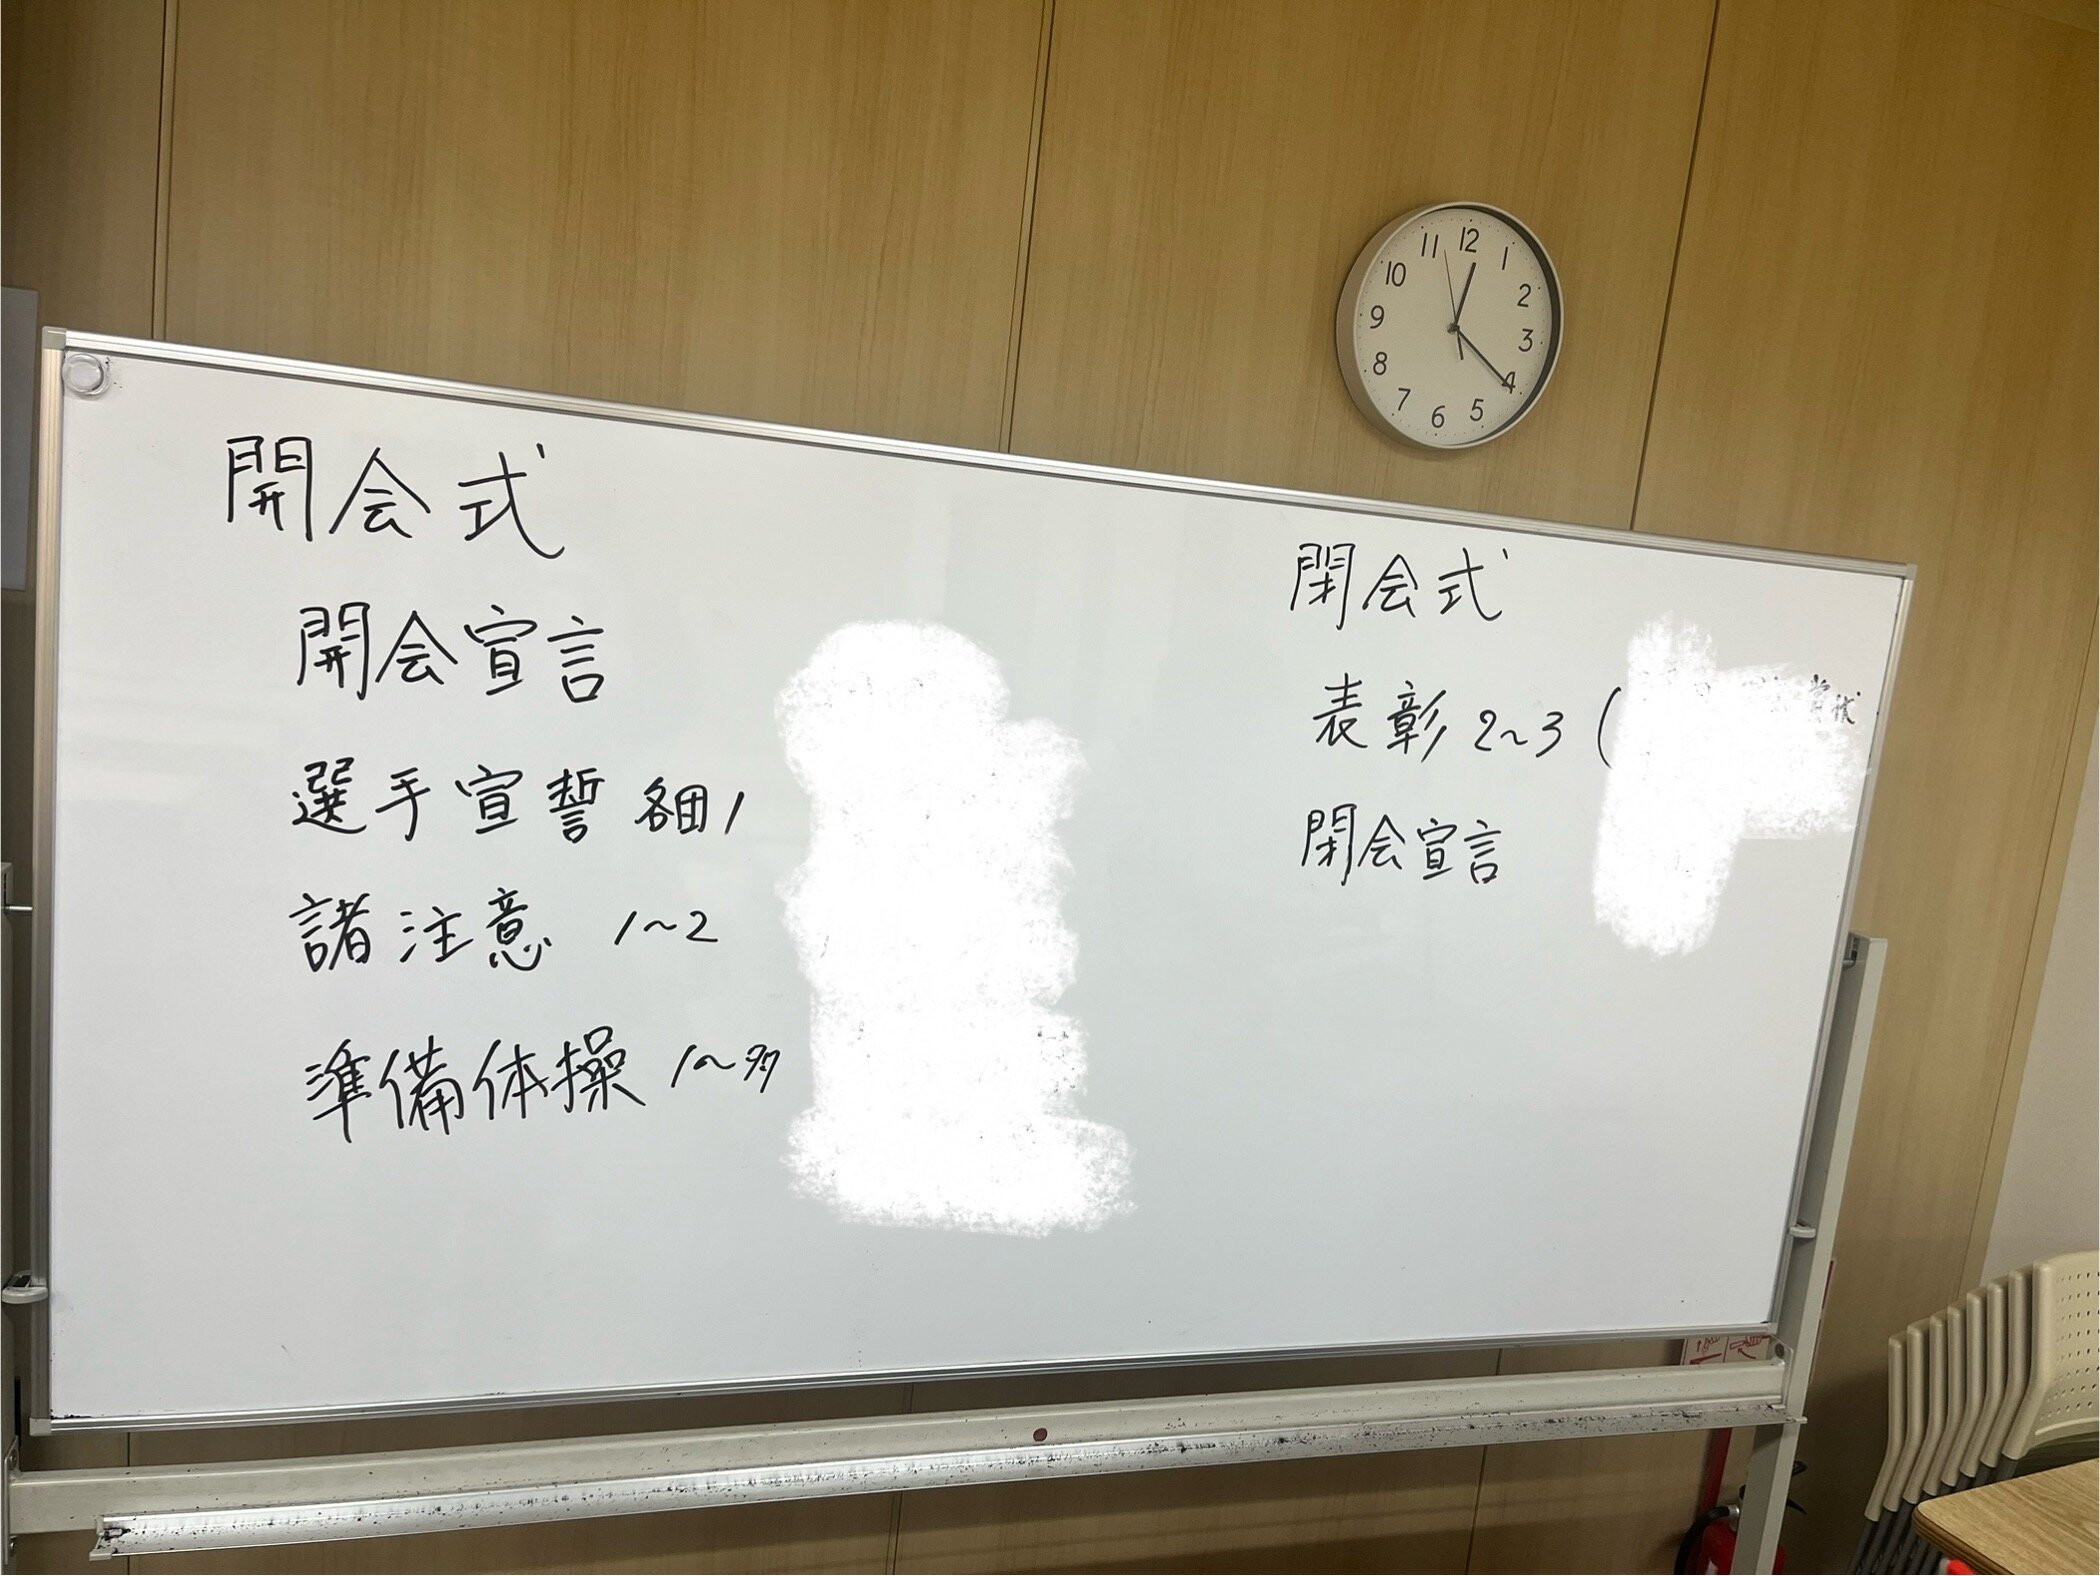 開会式
開会宣言
選手宣誓 各団1
諸注意 1~2
準備体操 1~多
閉会式
表彰 2~3 (
閉会宣言
11 12 1
10 2
9 3
8 4
7 6 5